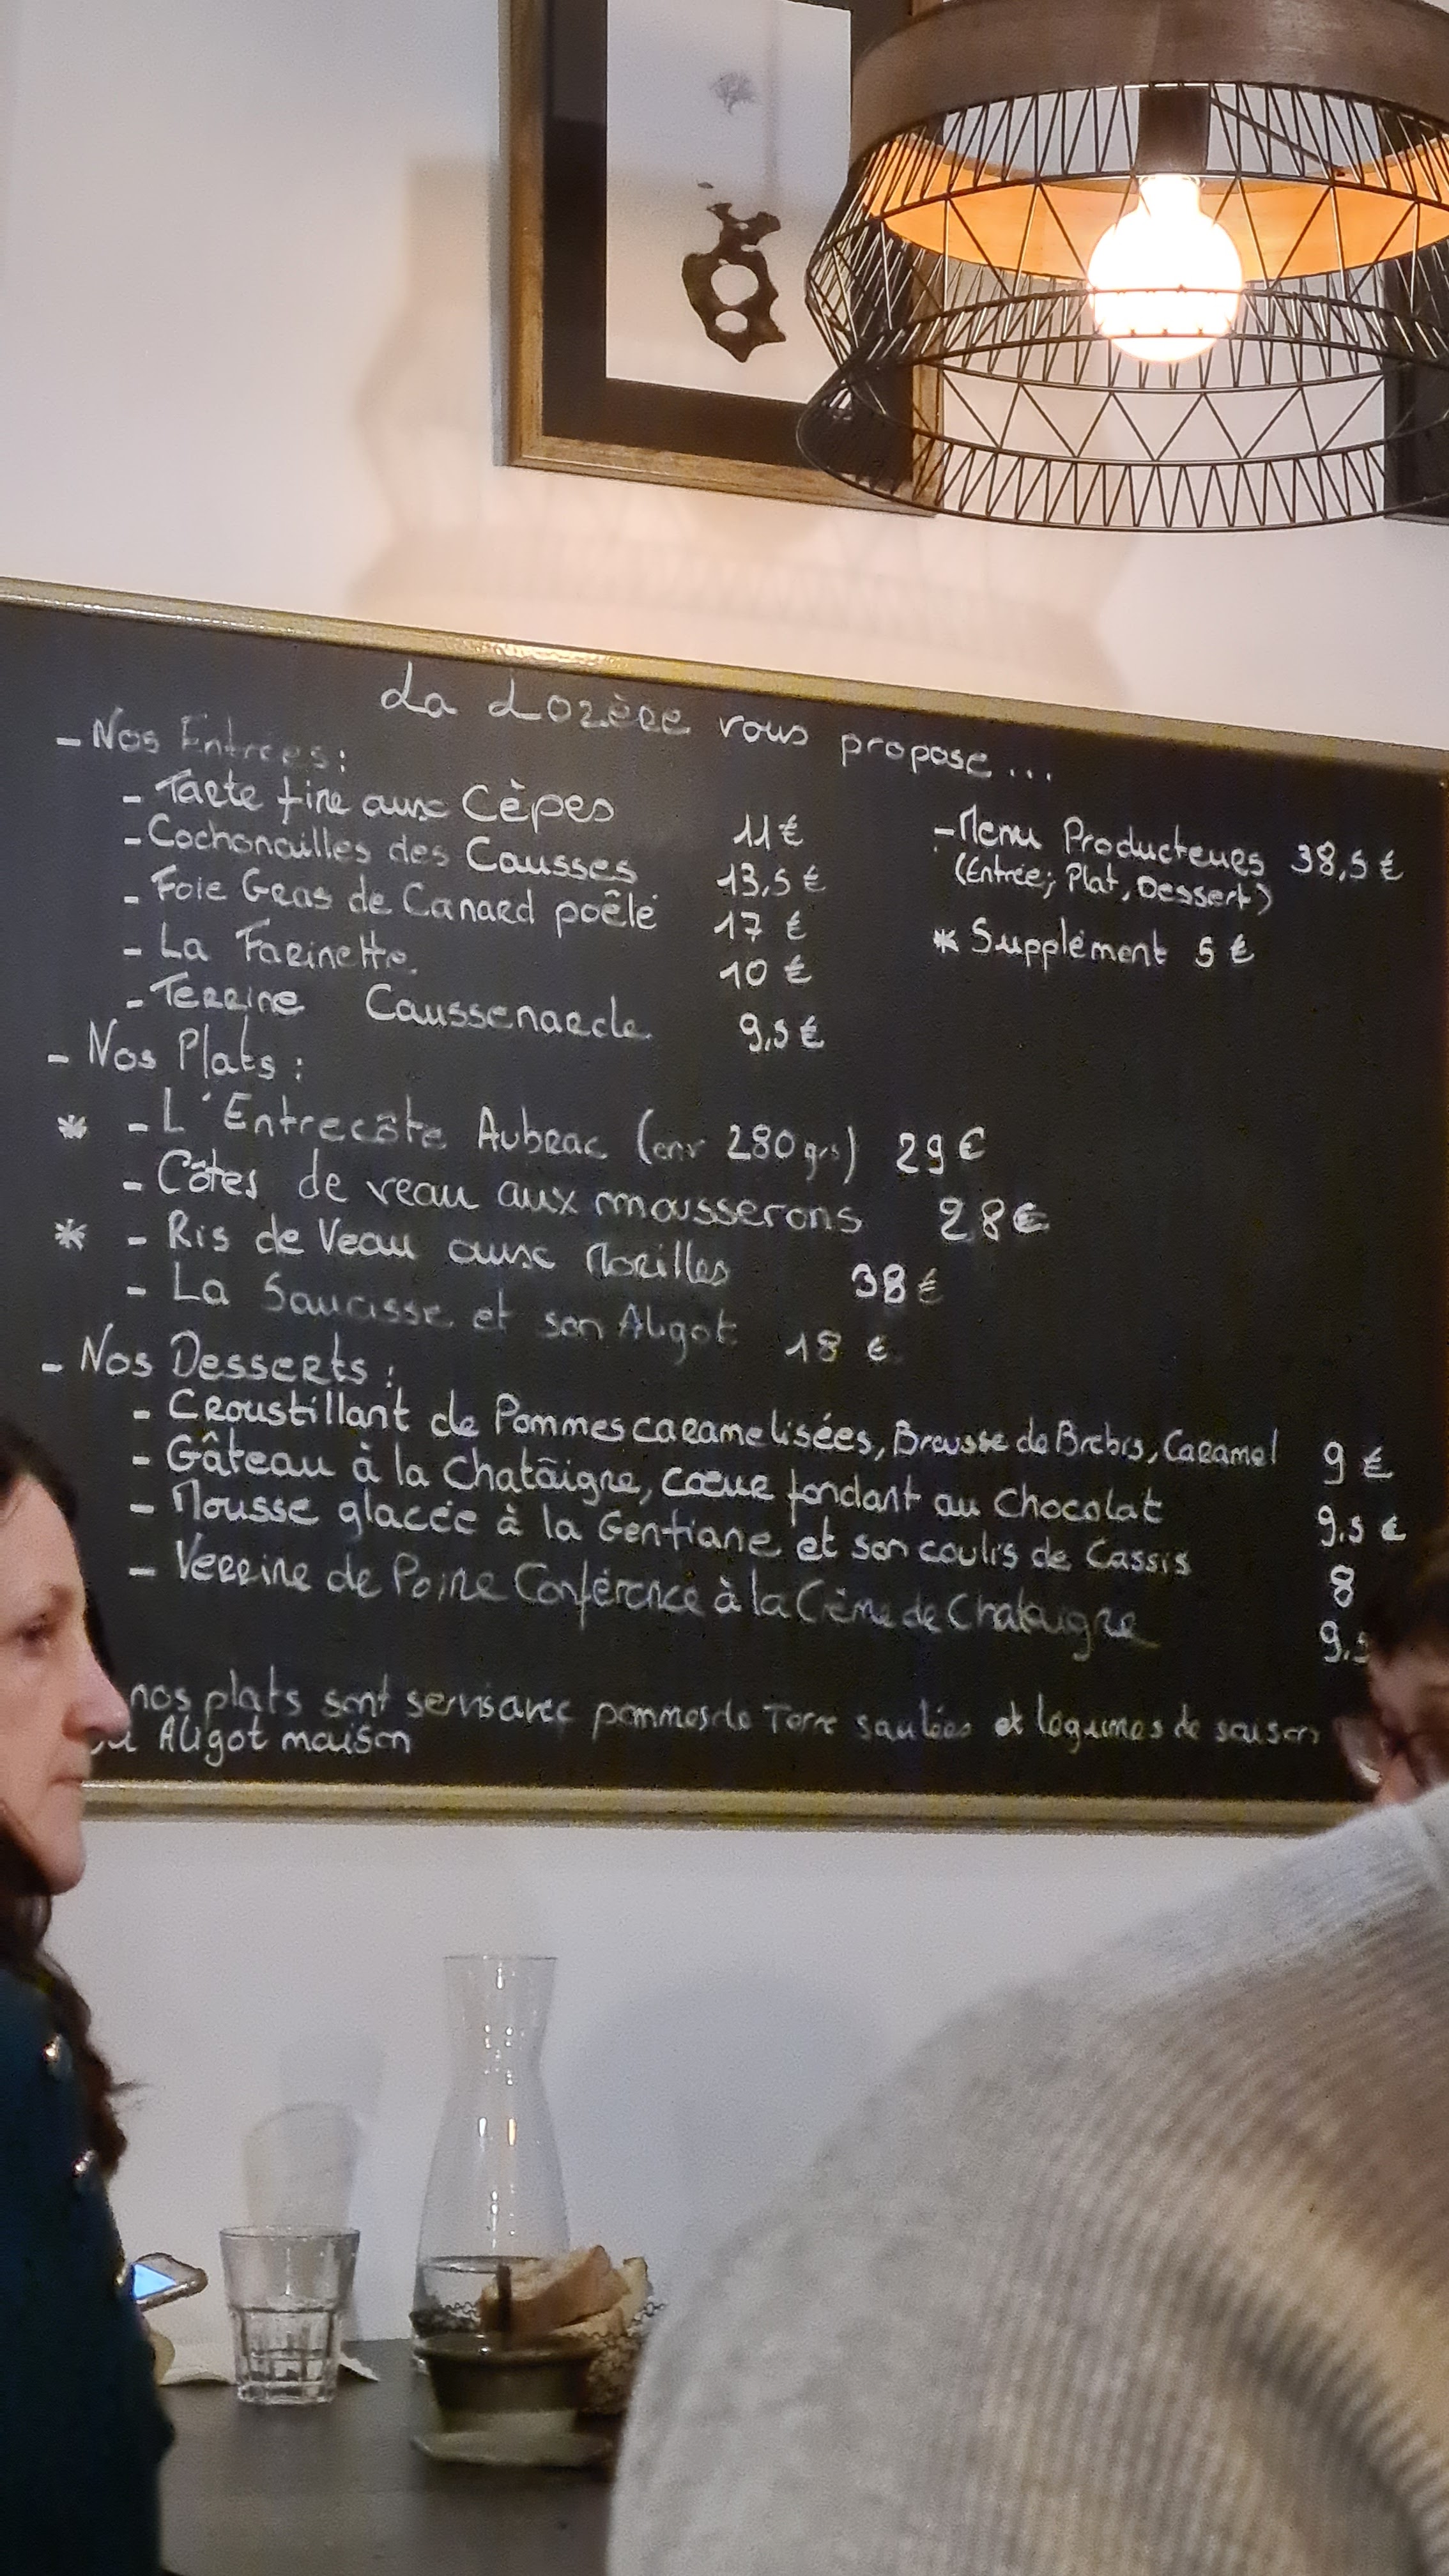 La Lozère vous propose...
- Nos Entrées:
- Tarte fine aux Cèpes 11 €
- Cochonailles des Causses 13,5 €
- Foie Gras de Canard poêlé 17 €
- La Farinette 10 €
- Terrine Caussenarde 9,5 €
- Menu Producteurs 38,5 €
(Entrée, Plat, Dessert)
* Supplément 5 €
- Nos Plats :
* - L'Entrecôte Aubrac (env 280 grs) 29 €
- Côtes de veau aux mousserons 28 €
* - Ris de Veau aux Morilles 38 €
- La Saucisse et son Aligot 18 €
- Nos Desserts :
- Croustillant de Pommes caramelisées, Brousse de Brebis, Caramel 9 €
- Gâteau à la Chatâigne, cœur fondant au Chocolat 9,5 €
- Mousse glacée à la Gentiane et son coulis de Cassis 8
- Verrine de Poire Conférence à la Crème de Chataigne 9,5
nos plats sont servis avec pommes de Terre sautées et légumes de saison
Aligot maison